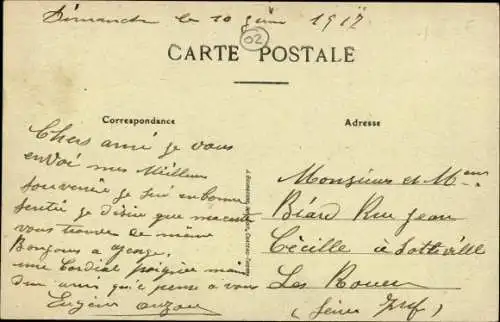 Dimanche le 10 Juin 1917
02
CARTE POSTALE
Correspondance
Adresse
Chers ami je vous
envoi mes Meilleur
souvenir je sui en bonne
sentié je désire que ma carte
vous trouve de même
Bonjours a
une Cordial poigné main
d'un ami qui pense a vous
Eugène
Monsieur et Mme
Biard Rue Jean
Cécille à Sotteville
Les Rouen
(Seine Inf)